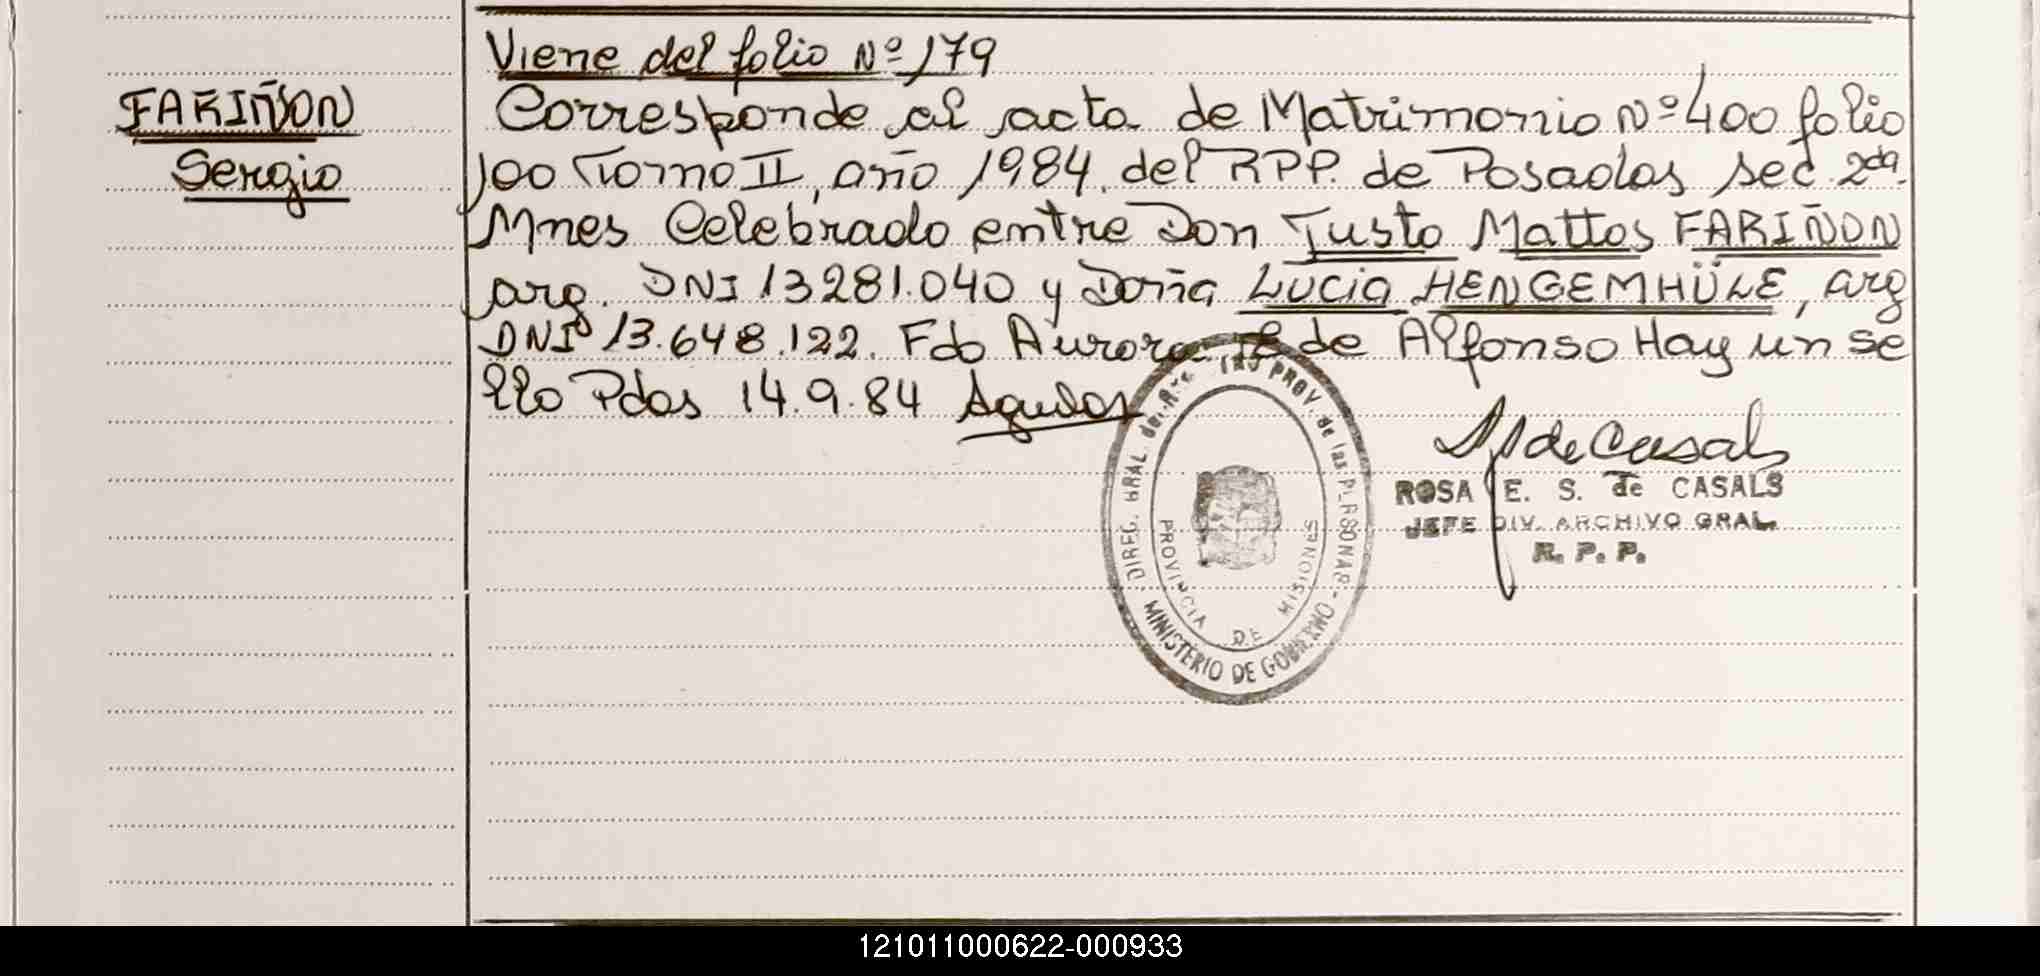 Viene del folio Nº 179
FARIÑON
Sergio
Corresponde al acta de Matrimonio Nº 400 folio
100 Tomo II, año 1984. del RPP. de Posadas sec 2da.
Mnes Celebrado entre Don Justo Mattos FARIÑON
arg. DNI 13281.040 y Doña Lucia HENGEMHÜLE, arg
DNI 13.648.122. Fdo Aurora de Alfonso Hay un se
llo Pdas 14.9.84
de Casals
ROSA E. S. de CASALS
JEFE DIV. ARCHIVO GRAL.
R. P. P.
DIREC. GRAL. del PROV. de las PERSONAS
MINISTERIO DE GOBIERNO
PROVINCIA DE MISIONES
121011000622-000933